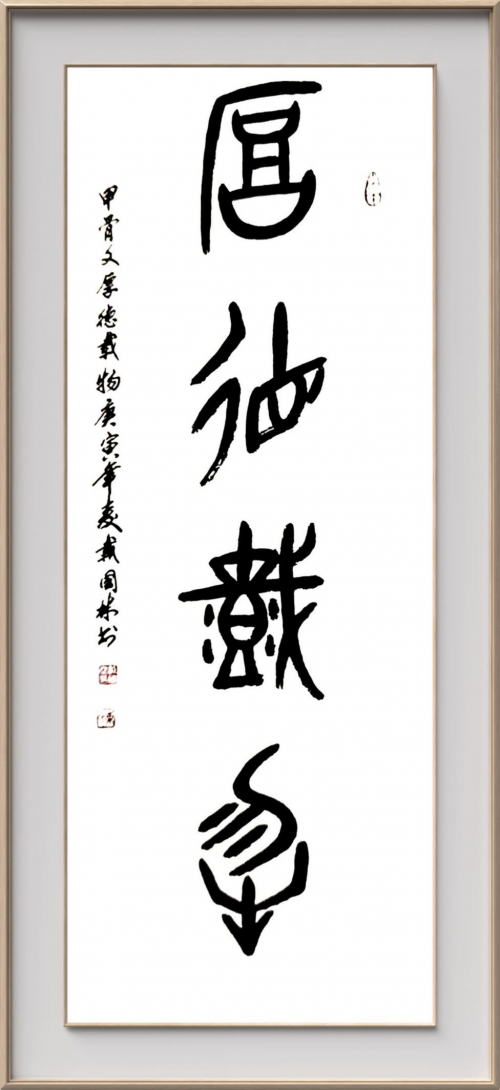 厚德载物
甲骨文厚德载物庚寅年夏戴国林书